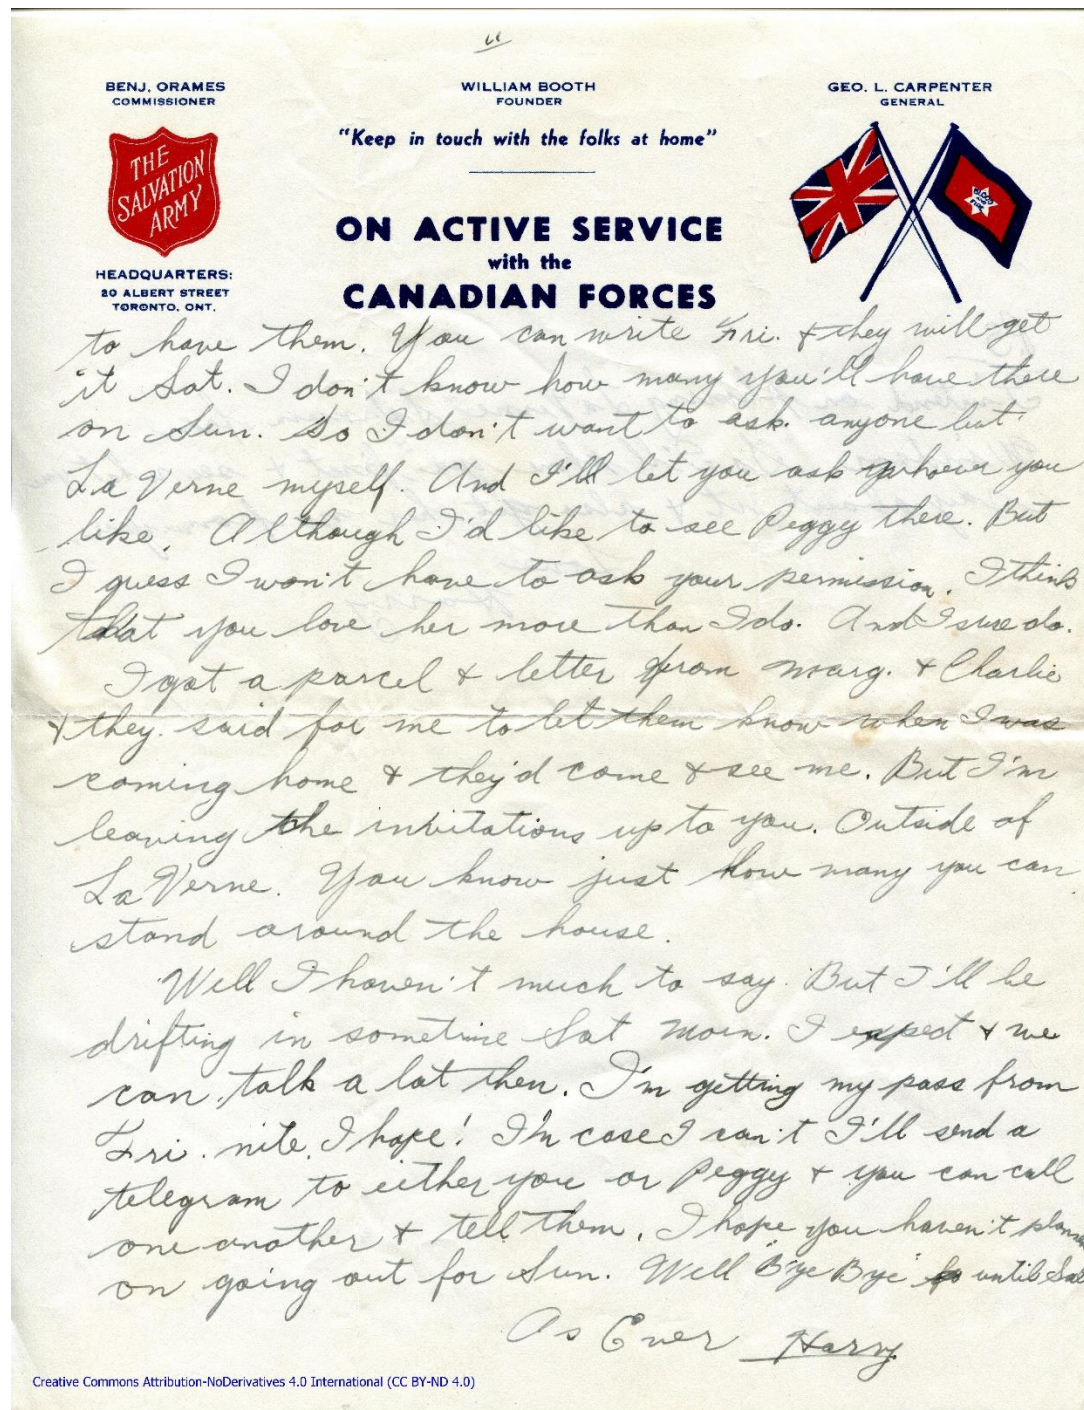 "
BENJ. ORAMES
COMMISSIONER
WILLIAM BOOTH
FOUNDER
GEO. L. CARPENTER
GENERAL
"Keep in touch with the folks at home"
THE
SALVATION
ARMY
BLOOD
AND
FIRE
ON ACTIVE SERVICE
with the
CANADIAN FORCES
HEADQUARTERS:
20 ALBERT STREET
TORONTO, ONT.
to have them. You can write Fri. & they will get
it Sat. I don't know how many you'll have there
on Sun. So I don't want to ask anyone but
La Verne myself. And I'll let you ask whoever you
like. Although I'd like to see Peggy there. But
I guess I won't have to ask your permission. I think
that you love her more than I do. And I sure do.
I got a parcel & letter from Marg. & Charlie
& they said for me to let them know when I was
coming home & they'd come & see me. But I'm
leaving the invitations up to you. Outside of
La Verne. You know just how many you can
stand around the house.
Well I haven't much to say. But I'll be
drifting in sometime Sat Morn. I expect & we
can talk a lot then. I'm getting my pass from
Fri. nite, I hope! I'n case I can't I'll send a
telegram to either you or Peggy & you can call
one another & tell them. I hope you haven't
on going out for Sun. Well "Bye Bye" until
As Ever Harry
Creative Commons Attribution-NoDerivatives 4.0 International (CC BY-ND 4.0)